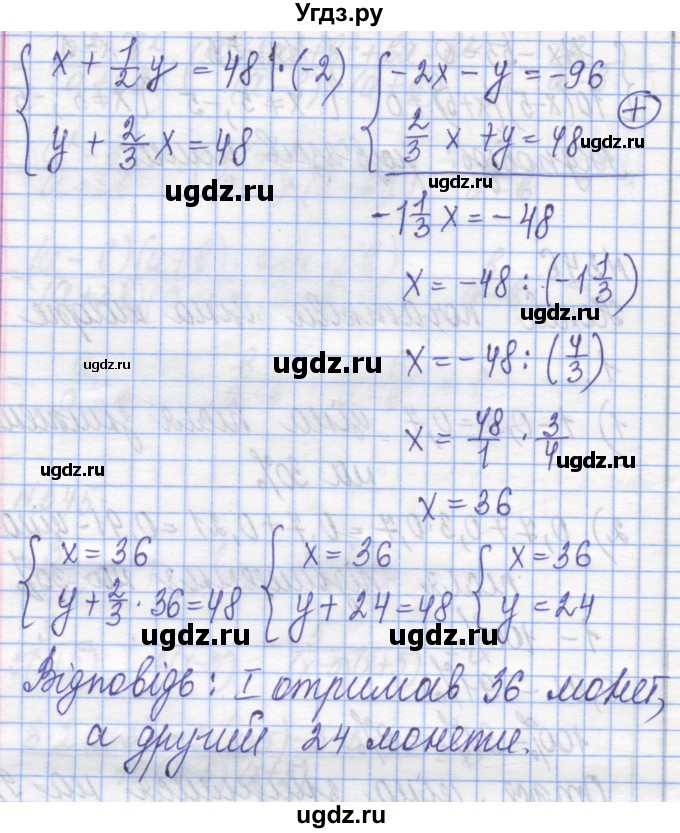 Угдз.ру
{ x + 1/2 y = 48 | · (-2)
y + 2/3 x = 48
{ -2x - y = -96
2/3 x + y = 48 ugdz.ru
+
ugdz.ru
ugdz.ru
-1 1/3 x = -48
x = -48 : (-1 1/3)
ugdz.ru
ugdz.ru
ugdz.ru
x = -48 : (4/3)
ugdz.ru
x = 48/1 · 3/4
ugdz.ru
ugdz.ru
x = 36
{ x = 36
y + 2/3 · 36 = 48
{ x = 36
y + 24 = 48
{ x = 36
y = 24
ugdz.ru
ugdz.ru
ugdz.ru
Відповідь: I отримав 36 монет,
а другий 24 монети.
ugdz.ru
ugdz.ru
ugdz.ru
ugdz.ru